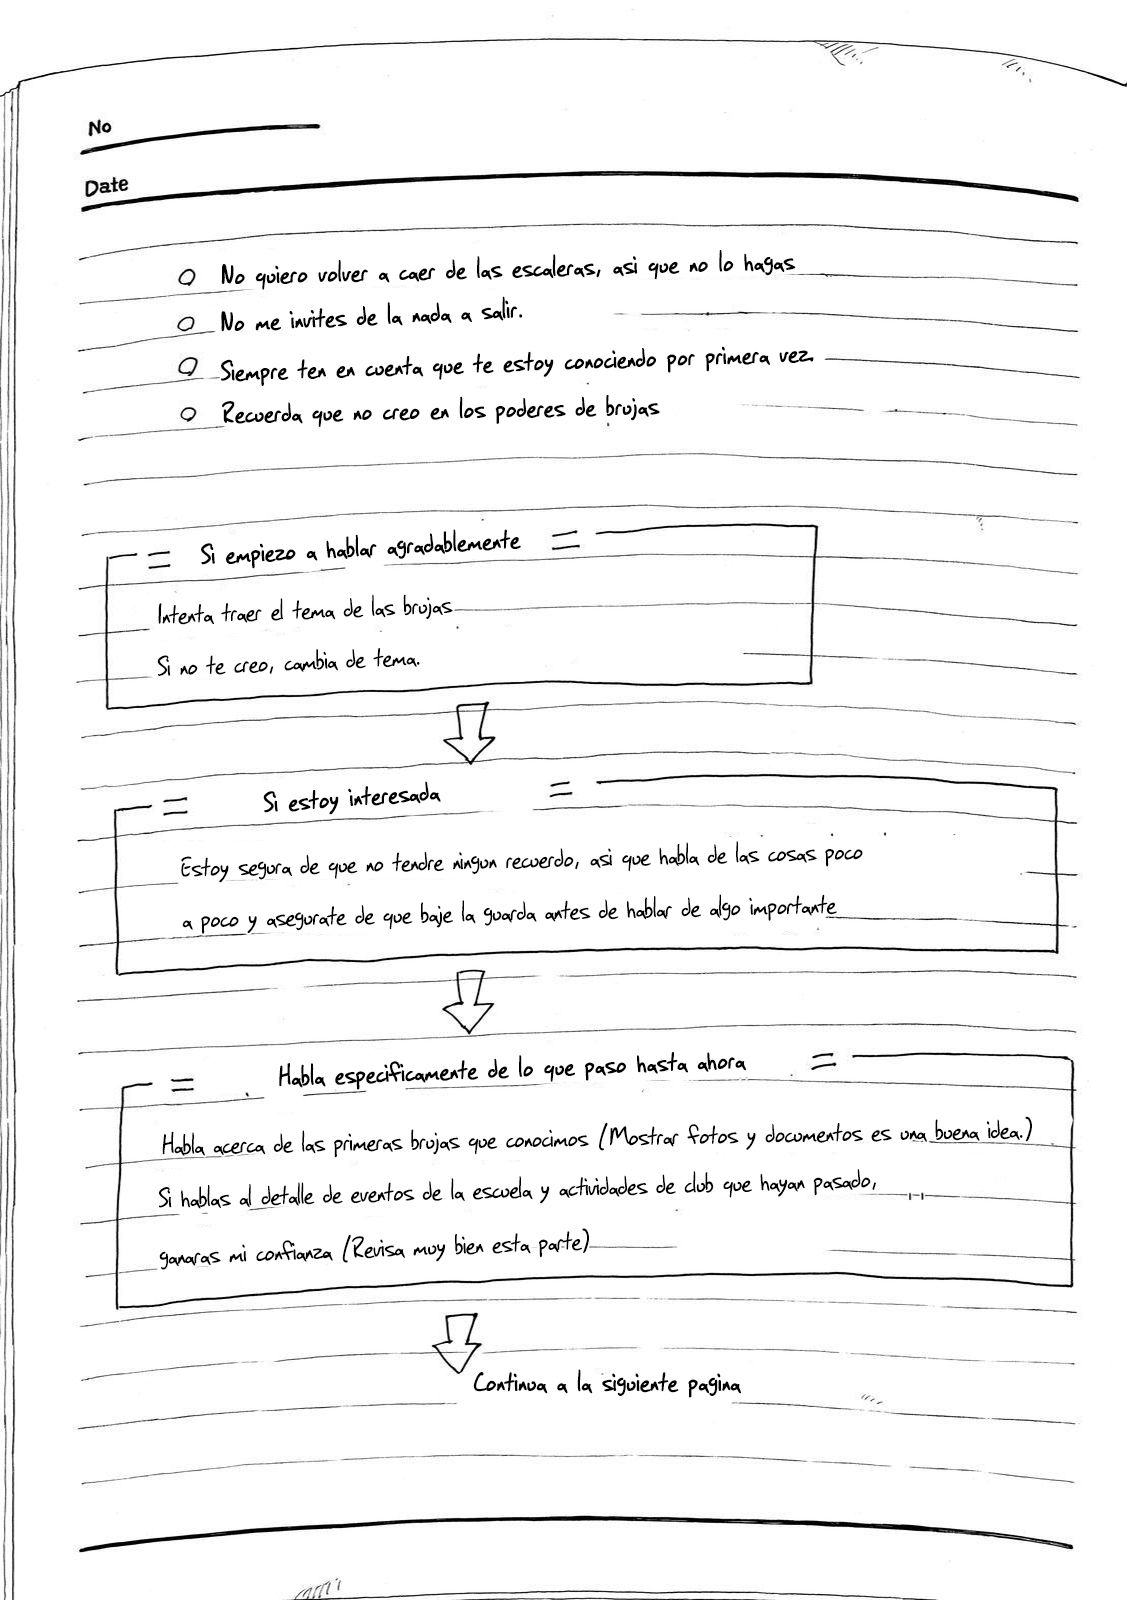 No
Date
No quiero volver a caer de las escaleras, asi que no lo hagas
No me invites de la nada a salir.
Siempre ten en cuenta que te estoy conociendo por primera vez.
Recuerda que no creo en los poderes de brujas
Si empiezo a hablar agradablemente
Intenta traer el tema de las brujas
Si no te creo, cambia de tema.
Si estoy interesada
Estoy segura de que no tendre ningun recuerdo, asi que habla de las cosas poco
a poco y asegurate de que baje la guarda antes de hablar de algo importante
Habla especificamente de lo que paso hasta ahora
Habla acerca de las primeras brujas que conocimos (Mostrar fotos y documentos es una buena idea.)
Si hablas al detalle de eventos de la escuela y actividades de club que hayan pasado,
ganaras mi confianza (Revisa muy bien esta parte)
Continua a la siguiente pagina